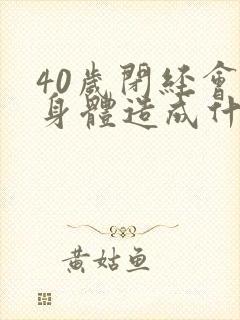 40歲閉經會
身體造成什
黃姑魚